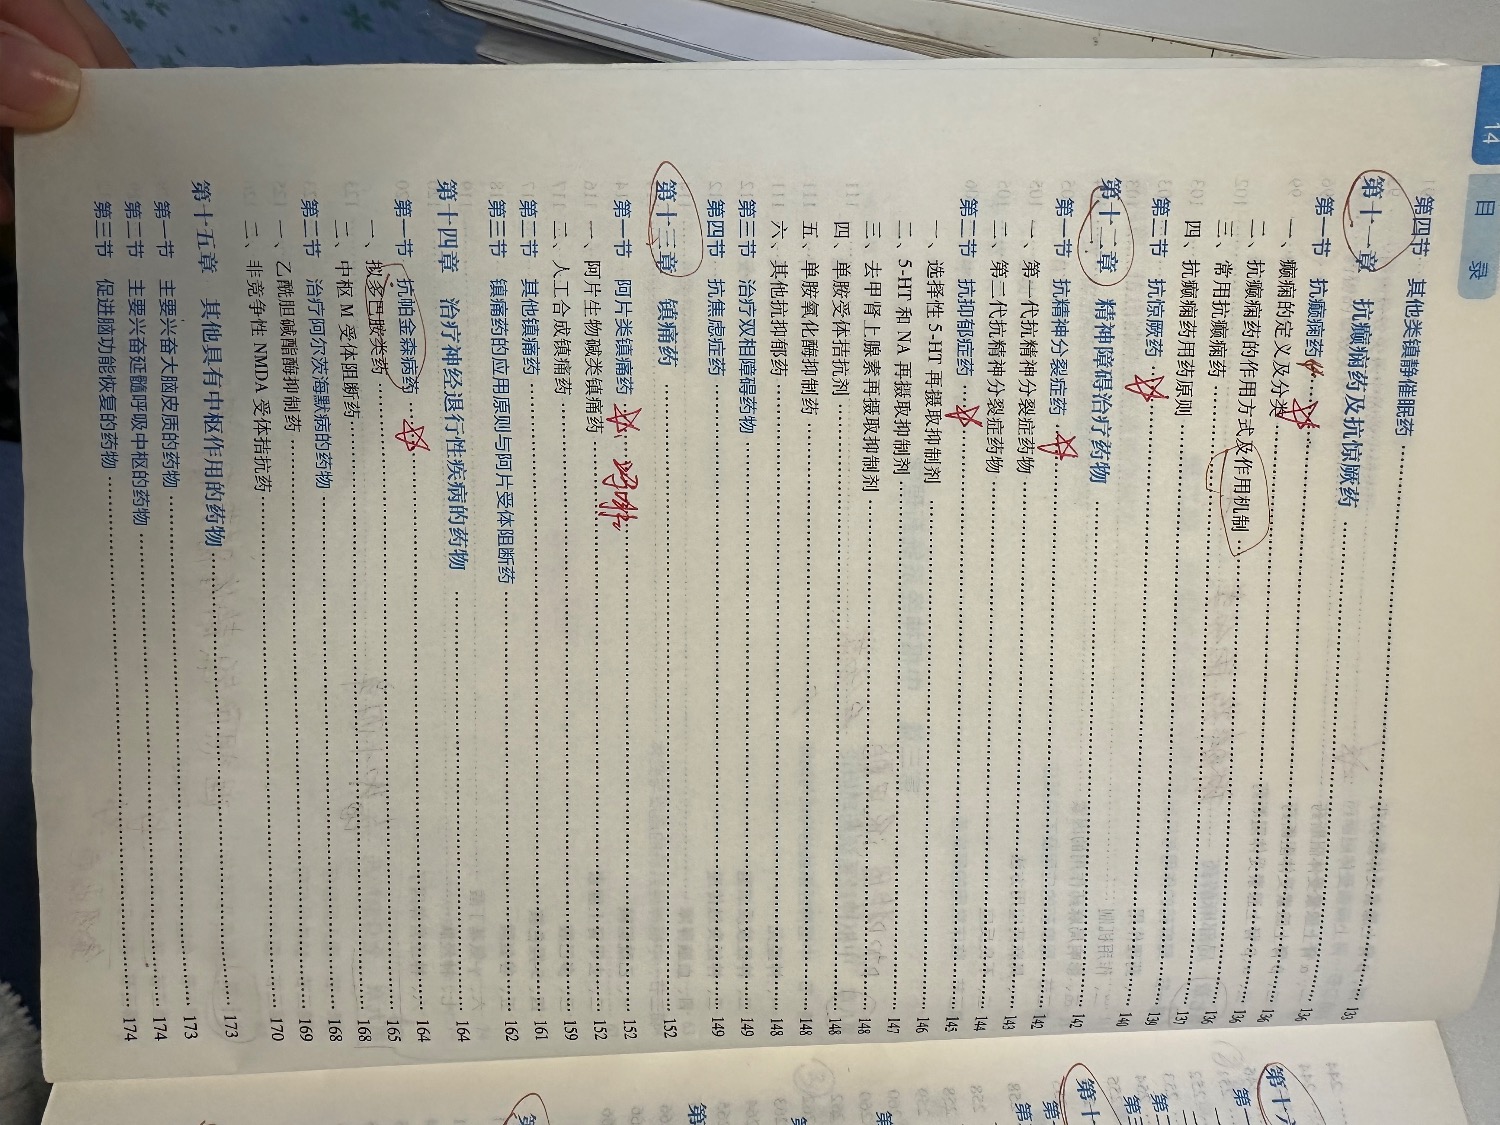 14 目 录
第四节 其他类镇静催眠药 133
第十一章 抗癫痫药及抗惊厥药 136
第一节 抗癫痫药 136
一、癫痫的定义及分类 136
二、抗癫痫药的作用方式及作用机制 136
三、常用抗癫痫药 137
四、抗癫痫药用药原则 139
第二节 抗惊厥药 140
第十二章 精神障碍治疗药物 142
第一节 抗精神分裂症药 142
一、第一代抗精神分裂症药物 143
二、第二代抗精神分裂症药物 144
第二节 抗抑郁症药 145
一、选择性 5-HT 再摄取抑制剂 146
二、5-HT 和 NA 再摄取抑制剂 147
三、去甲肾上腺素再摄取抑制剂 148
四、单胺受体拮抗剂 148
五、单胺氧化酶抑制药 148
六、其他抗抑郁药 148
第三节 治疗双相障碍药物 149
第四节 抗焦虑症药 149
第十三章 镇痛药 152
第一节 阿片类镇痛药 吗啡 152
一、阿片生物碱类镇痛药 152
二、人工合成镇痛药 159
第二节 其他镇痛药 161
第三节 镇痛药的应用原则与阿片受体阻断药 162
第十四章 治疗神经退行性疾病的药物 164
第一节 抗帕金森病药 164
一、拟多巴胺类药 165
二、中枢 M 受体阻断药 168
第二节 治疗阿尔茨海默病的药物 168
一、乙酰胆碱酯酶抑制药 169
二、非竞争性 NMDA 受体拮抗药 170
第十五章 其他具有中枢作用的药物 173
第一节 主要兴奋大脑皮质的药物 173
第二节 主要兴奋延髓呼吸中枢的药物 174
第三节 促进脑功能恢复的药物 174